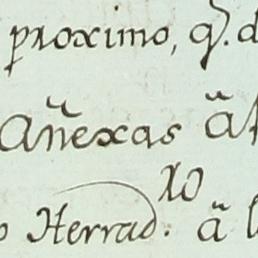 proximo, q. d
Anexas ã
Herrad.ro ã